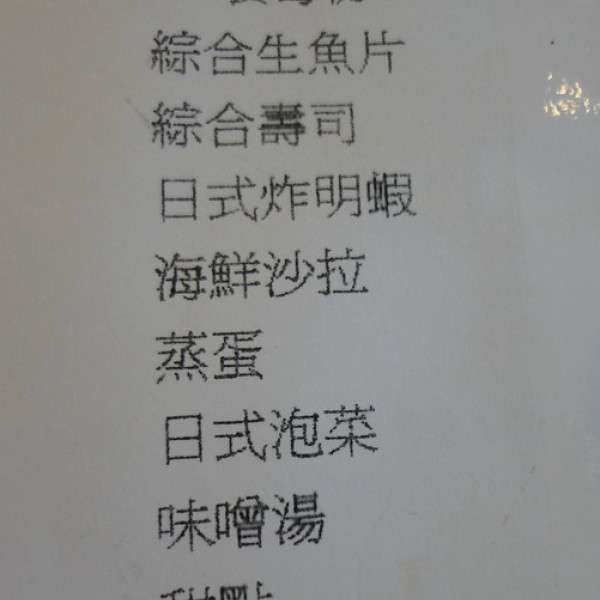 綜合生魚片
綜合壽司
日式炸明蝦
海鮮沙拉
蒸蛋
日式泡菜
味噌湯
甜點